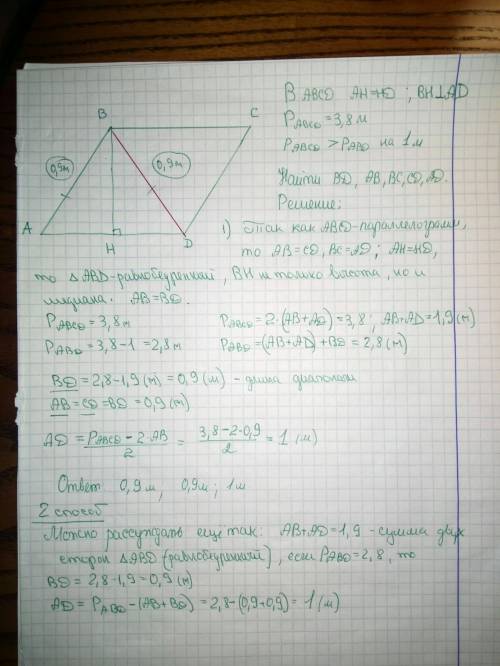 В ABCD AH=HD; BH⊥AD
P ABCD = 3,8 м
P ABCD > P ABD на 1 м
Найти BD, AB, BC, CD, AD.
Решение:
B
C
0,9м
0,9м
A
H
D
1) Так как ABCD-параллелограмм,
то AB=CD, BC=AD; AH=HD,
то △ABD-равнобедренный, BH не только высота, но и
медиана. AB=BD.
P ABCD = 3,8 м P ABCD = 2·(AB+AD) = 3,8; AB+AD=1,9 (м)
P ABD = 3,8-1 = 2,8 м P ABD = (AB+AD)+BD = 2,8 (м)
BD = 2,8-1,9 (м) = 0,9 (м) - длина диагонали
AB = CD = BD = 0,9 (м)
AD = (P ABCD - 2·AB)/2 = (3,8-2·0,9)/2 = 1 (м)
Ответ 0,9 м, 0,9 м; 1 м
2 способ
Можно рассуждать еще так: AB+AD=1,9 - сумма двух
сторон △ABD (равнобедренный), если P ABD = 2,8, то
BD = 2,8-1,9 = 0,9 (м)
AD = P ABD - (AB+BD) = 2,8-(0,9+0,9) = 1 (м)